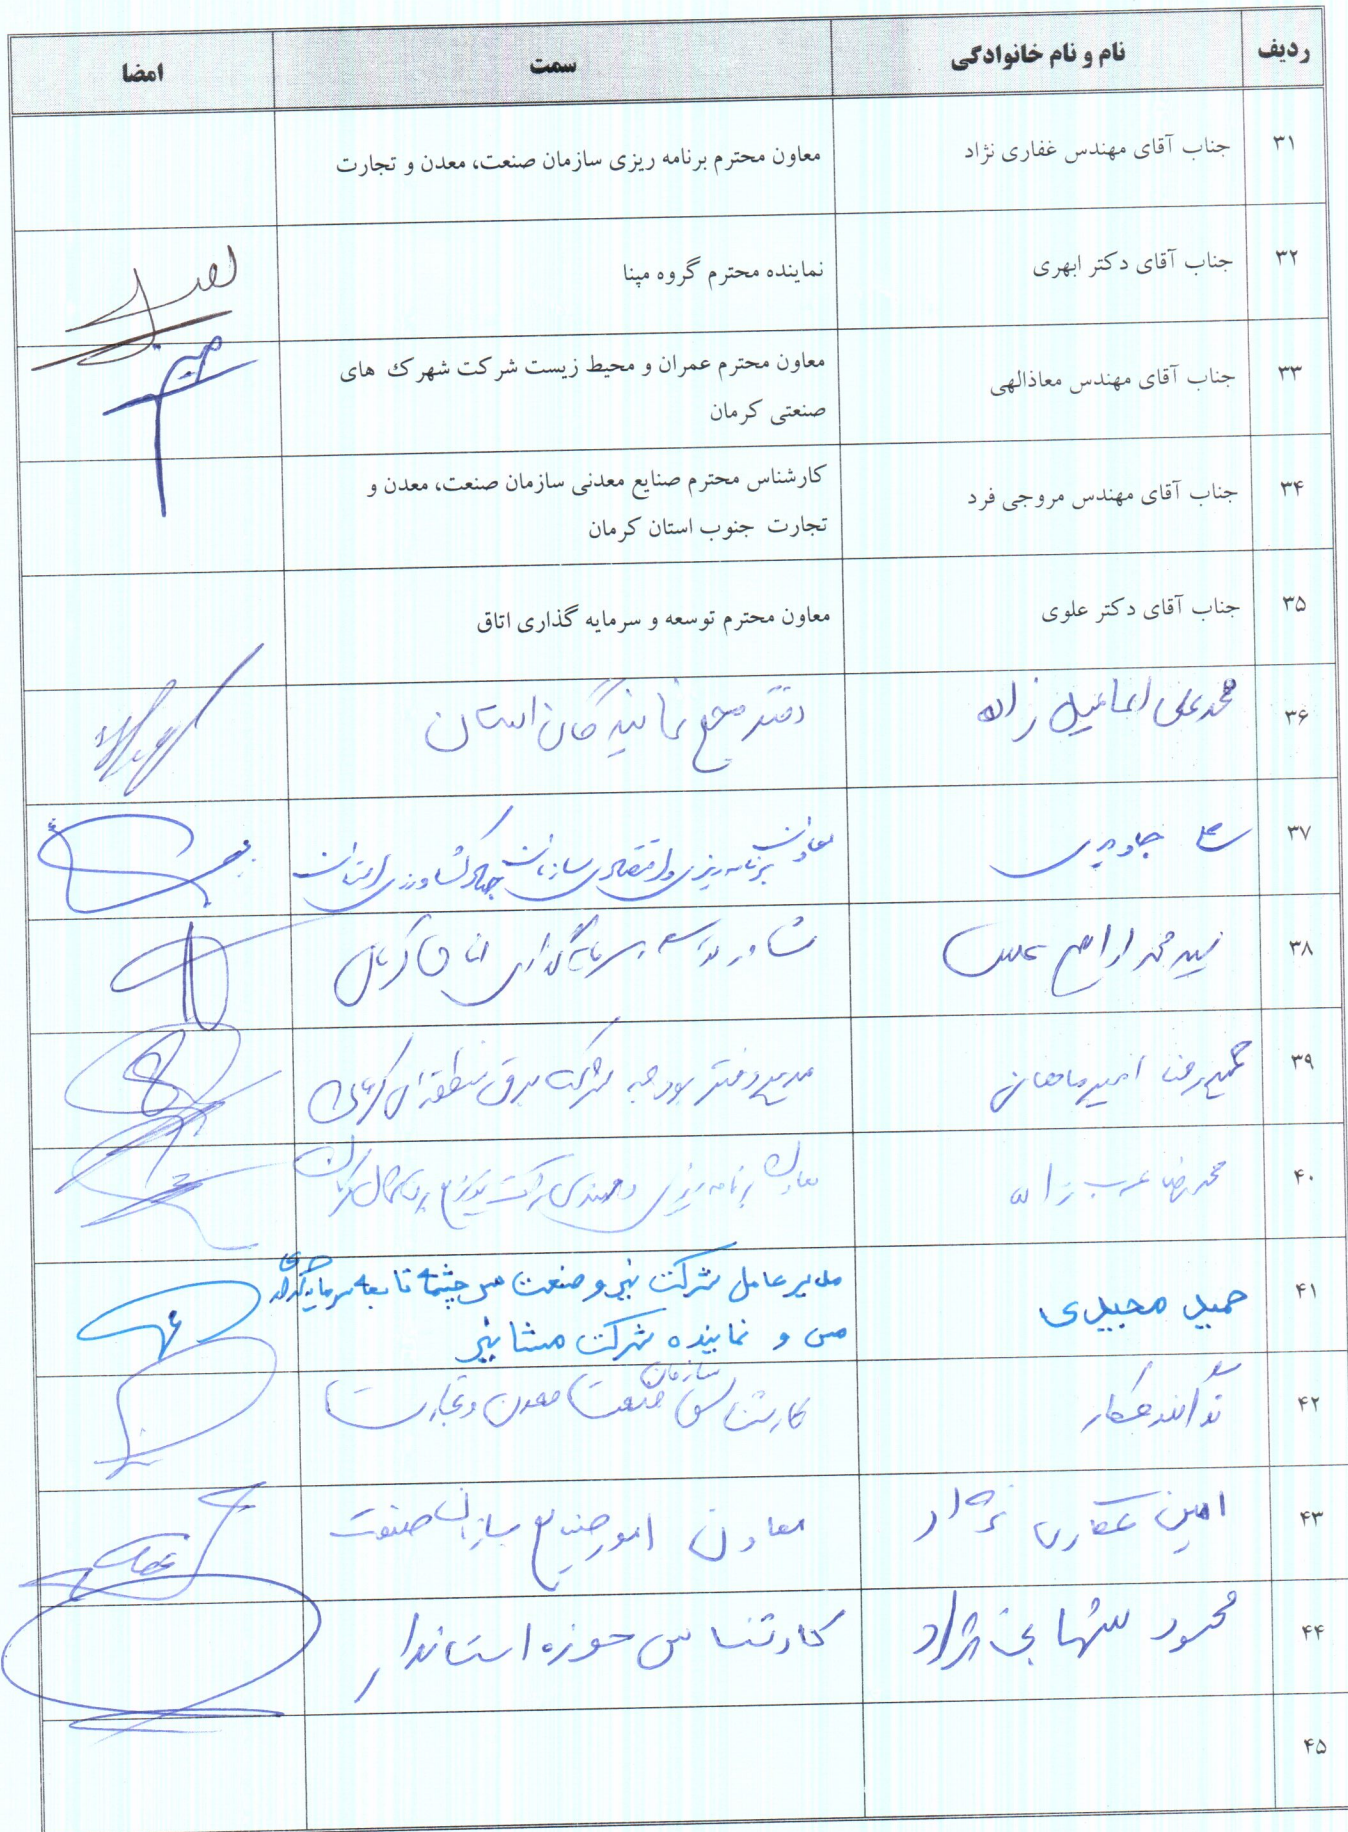 ردیف نام و نام خانوادگی سمت امضا
۳۱ جناب آقای مهندس غفاری نژاد معاون محترم برنامه ریزی سازمان صنعت، معدن و تجارت
۳۲ جناب آقای دکتر ابهری نماینده محترم گروه مپنا
۳۳ جناب آقای مهندس معاذالهی معاون محترم عمران و محیط زیست شرکت شهرک های
صنعتی کرمان
۳۴ جناب آقای مهندس مروجی فرد کارشناس محترم صنایع معدنی سازمان صنعت، معدن و
تجارت جنوب استان کرمان
۳۵ جناب آقای دکتر علوی معاون محترم توسعه و سرمایه گذاری اتاق
۳۶ محمدعلی اسماعیل زاده دفتر مجمع نمایندگان استان
۳۷ معاونت
برنامه ریزی و اقتصادی سازمان جهاد کشاورزی استان
۳۸ سید محمد
۳۹ حمیدرضا امیرماهانی مدیر دفتر بودجه شرکت برق منطقه ای کرمان
۴۰ محمدرضا عرب زاده معاون برنامه ریزی و مهندسی شرکت توزیع برق شمال کرمان
۴۱ حمید مجیدی مدیر عامل شرکت نیرو صنعت مس چشمه تابعه سرمایه گذاری
مس و نماینده شرکت مشانیر
۴۲ کارشناس سازمان صنعت معدن و تجارت
۴۳ امین نژاد معاون امور صنایع سازمان صنعت
۴۴ محمود نژاد کارشناس حوزه استاندار
۴۵